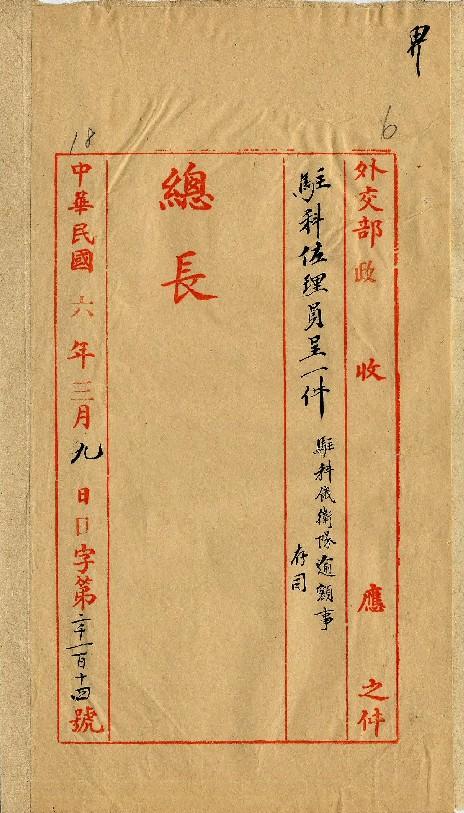 畀
6
18
外交部政收應之件
駐科佐理員呈一件
駐科儀衛隊逾額事
存司
總長
中華民國六年三月九日日字第二千一百十四號